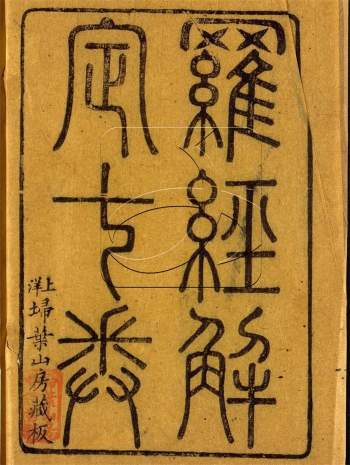 羅經解
定七卷
上洋埽葉山房藏板